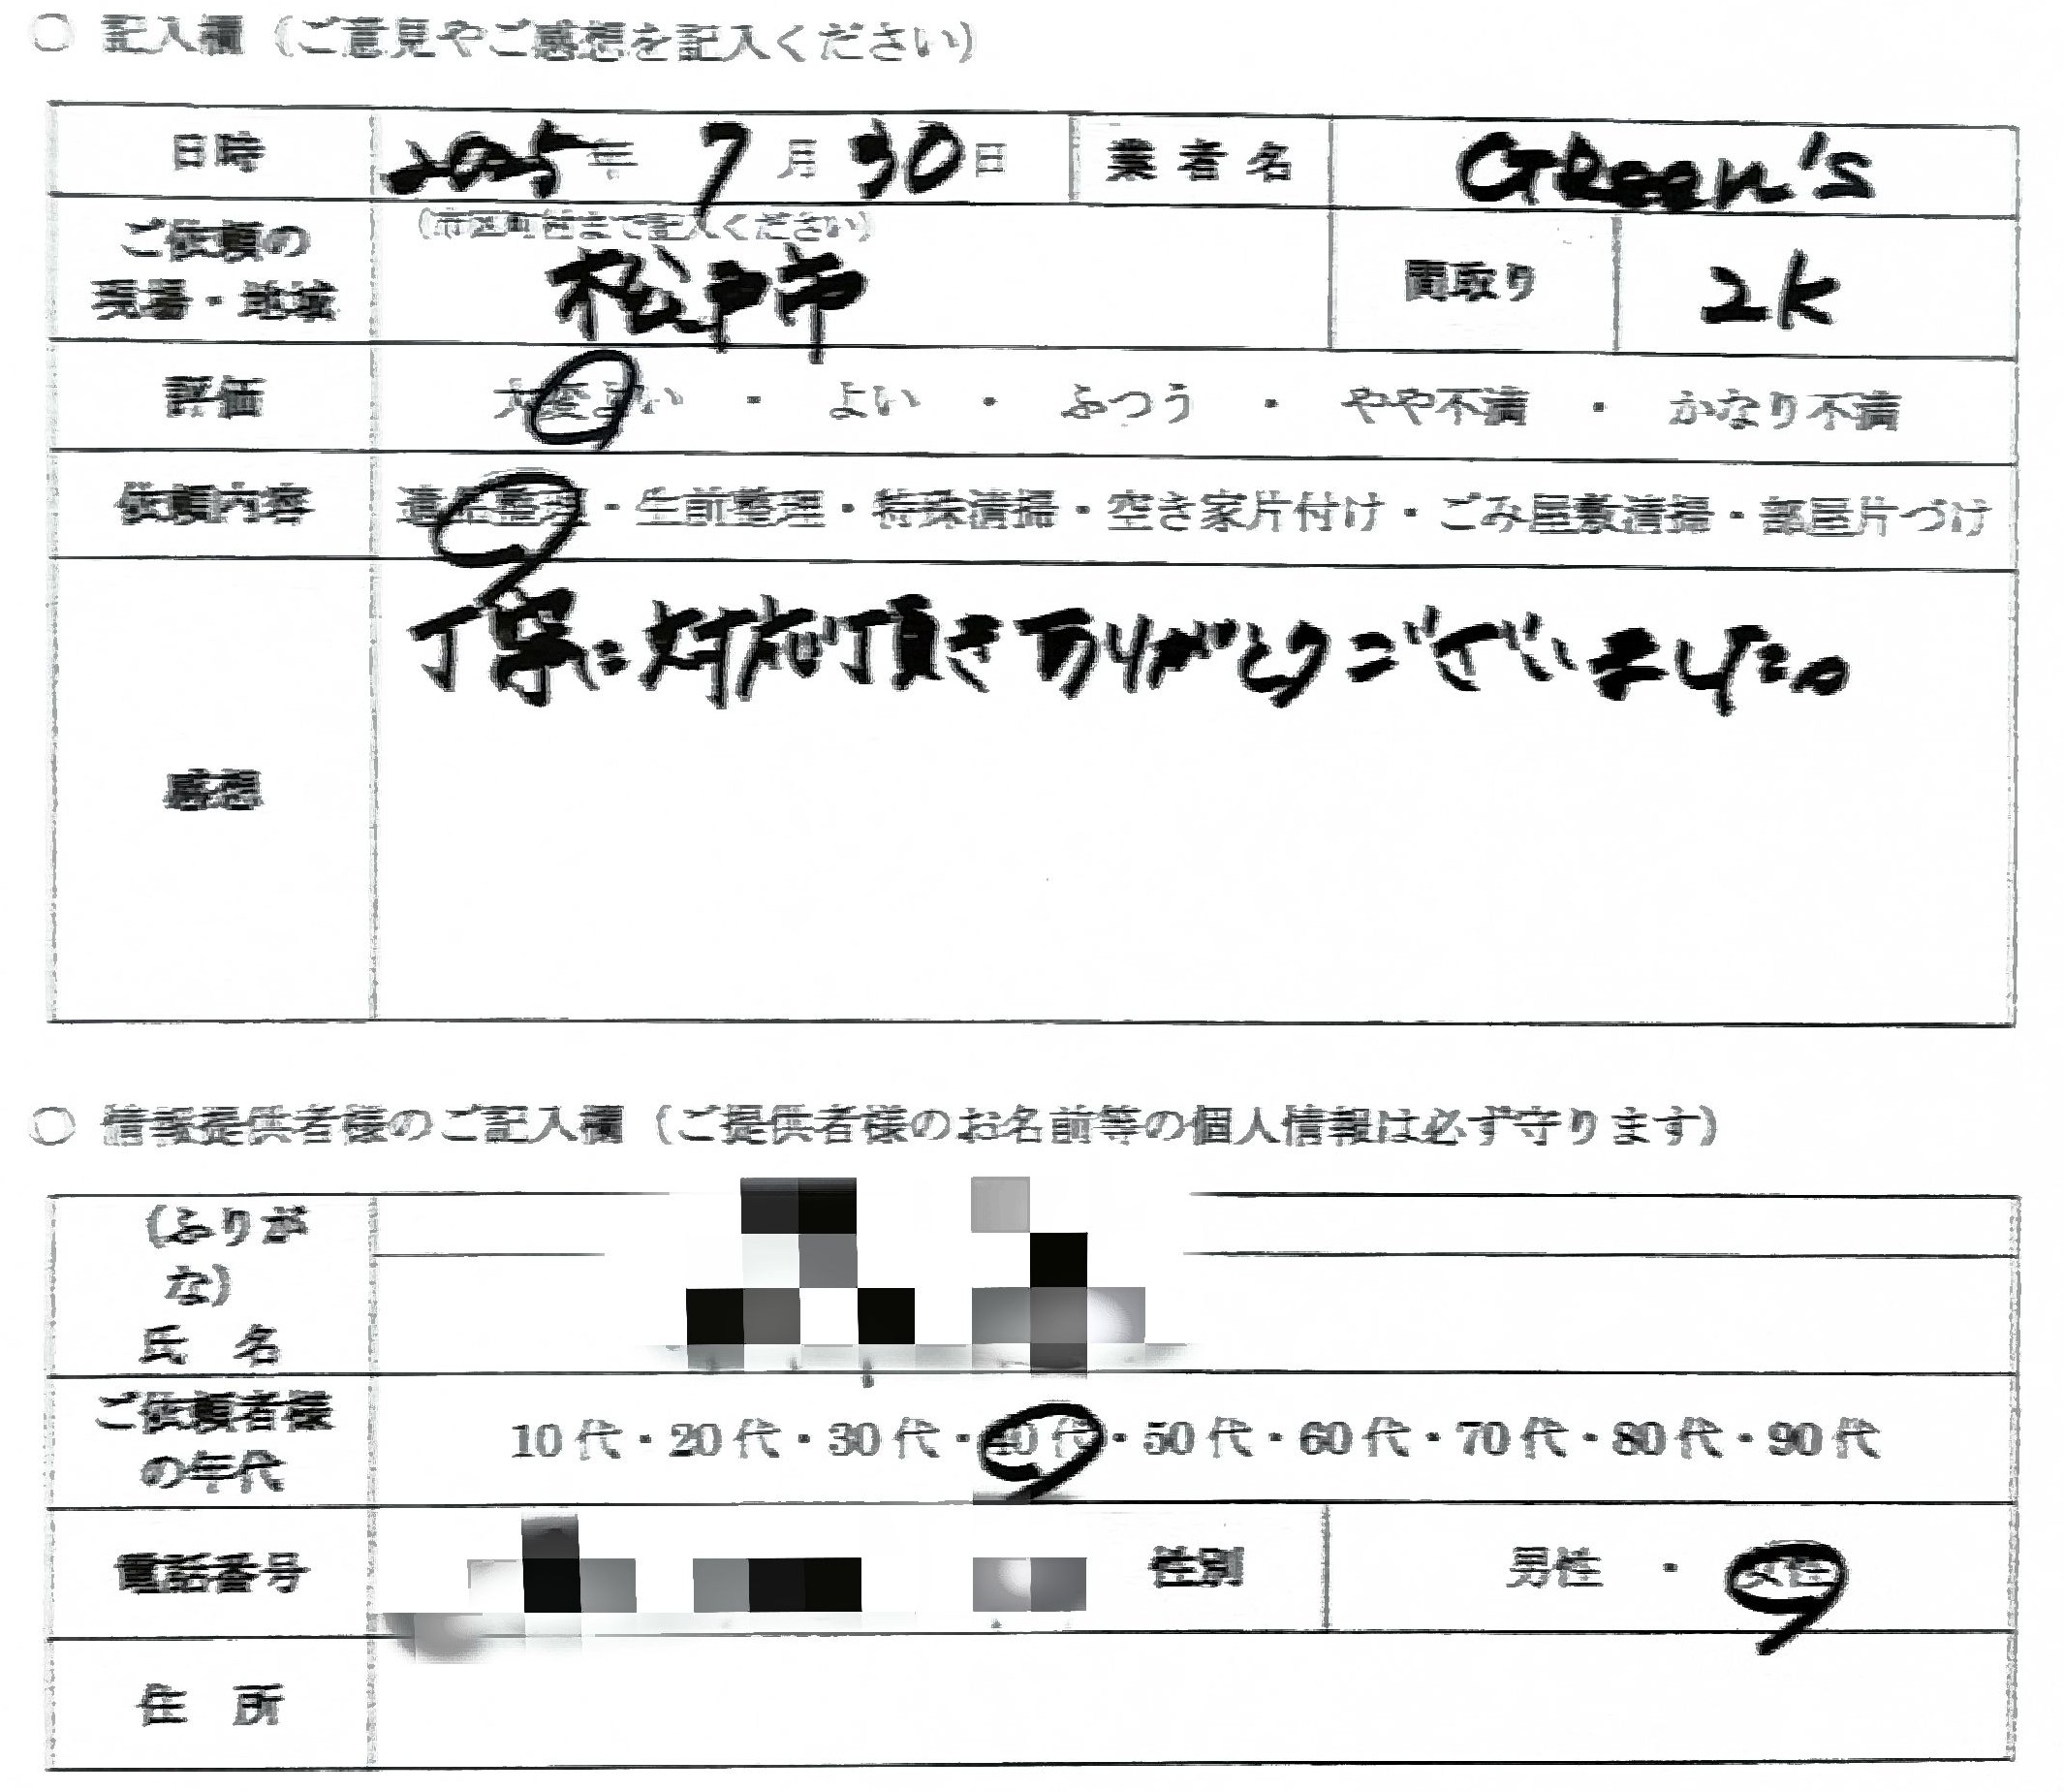 ○ 記入欄（ご意見やご感想を記入ください）
日時 2025年 7月 30日 業者名 GReen's
ご依頼の
現場・地域
（市区町村まで記入ください）
松戸市
間取り 2K
評価 大変よい ・ よい ・ ふつう ・ やや不満 ・ かなり不満
依頼内容 遺品整理・生前整理・特殊清掃・空き家片付け・ごみ屋敷清掃・部屋片づけ
感想
丁寧に対応頂きありがとうございました。
○ 情報提供者様のご記入欄（ご提供者様のお名前等の個人情報は必ず守ります）
（ふりが
な）
氏 名
ご依頼者様
の年代
10代・20代・30代・40代・50代・60代・70代・80代・90代
電話番号 性別 男性 ・ 女性
住 所